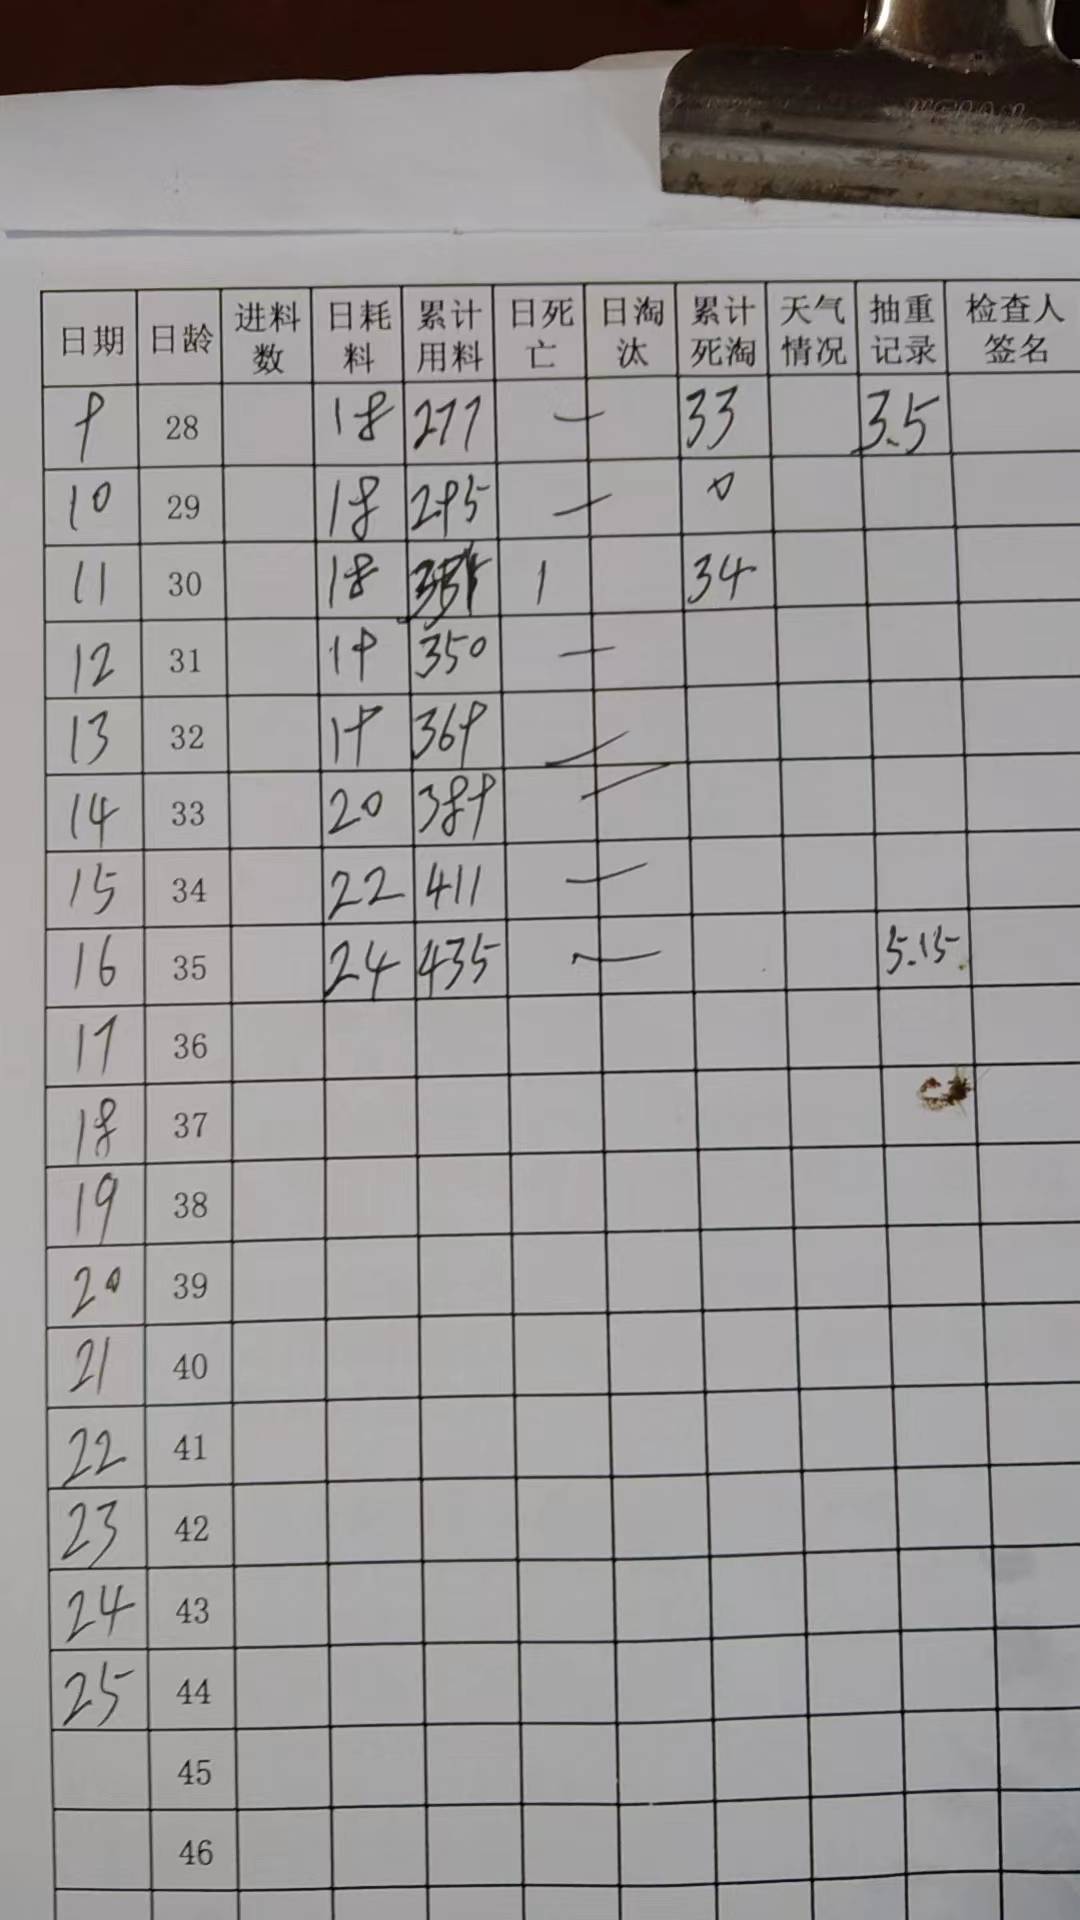 日期 日龄 进料数 日耗料 累计用料 日死亡 日淘汰 累计死淘 天气情况 抽重记录 检查人签名
9 28 18 277 — 33 3.5
10 29 18 295 — 0
11 30 18 1 34
12 31 19 350 —
13 32 19 369 —
14 33 20 389 —
15 34 22 411 —
16 35 24 435 — 5.15
17 36
18 37
19 38
20 39
21 40
22 41
23 42
24 43
25 44
45
46